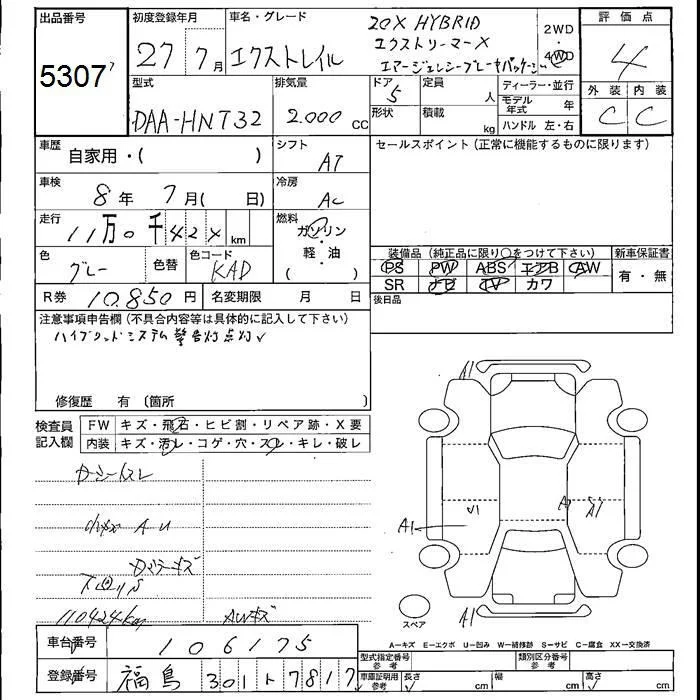 出品番号 初度登録年月 車名・グレード 20X HYBRID 2WD 評価点
5307 27年7月 エクストレイル エクストリーマーX 4WD 4
エマージェンシーブレーキパッケージ
型式 排気量 ドア 5 定員 人 ディーラー・並行 外装 内装
DAA-HNT32 2.000 CC 形状 積載 kg モデル年式 年 C C
ハンドル 左・右
車歴 自家用・( ) シフト AT セールスポイント(正常に機能するものに限ります)
車検 8年 7月( 日) 冷房 AC
走行 11万0千424km 燃料 ガソリン・軽・油( )
色 グレー 色替 色コード KAD 装備品(純正品に限り○をつけて下さい) 新車保証書
PS PW ABS エアB AW 有・無
SR ナビ TV カワ
R券 10.850円 名変期限 月 日 後日品
注意事項申告欄(不具合内容等は具体的に記入して下さい)
ハイブリッドシステム警告灯点灯
修復歴 有〔箇所 〕
検査員記入欄 FW キズ・飛石・ヒビ割・リペア跡・X要
内装 キズ・汚レ・コゲ・穴・スレ・キレ・破レ
A1
A1
A1
A1
110424km AWキズ
スペア
A-キズ E-エクボ U-凹み W-補修跡 S-サビ C-腐食 XX-交換済
車台番号 106175
型式指定番号 参考 類別区分番号 参考
登録番号 福島 301 ト 7817
車庫証明用 参考 長さ cm 幅 cm 高さ cm